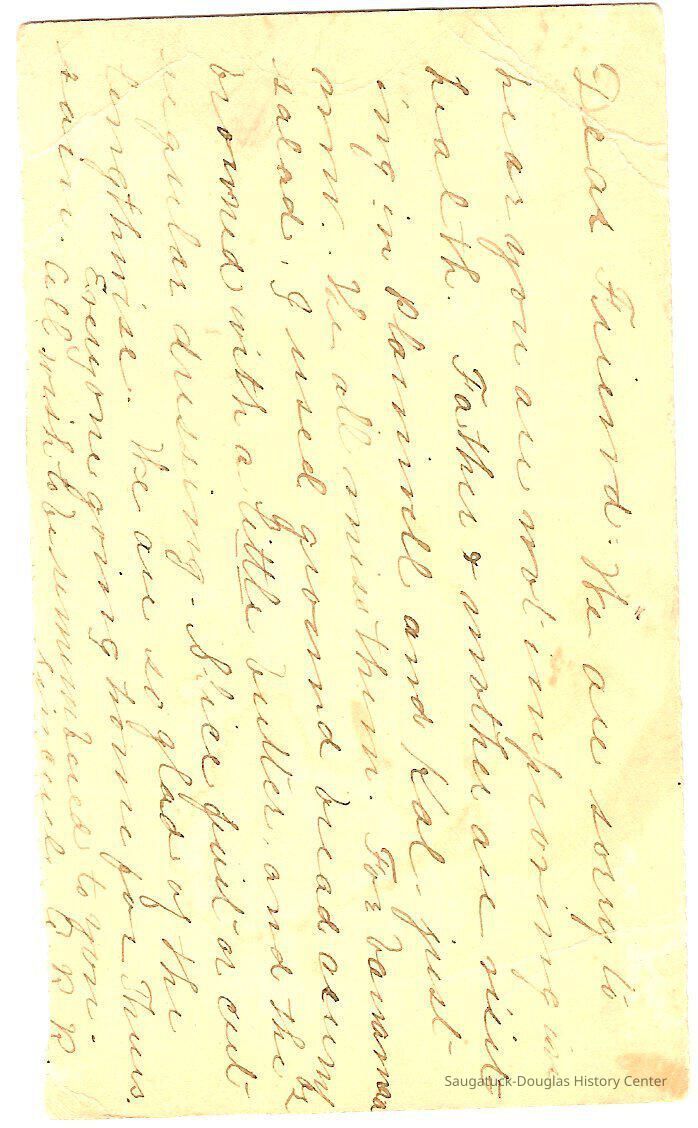 Dear Friend: We are sorry to
hear you are not improving in
health. Father & mother are visit-
ing in Plainwell and Kal. just
now. We all miss them. For banana
salad, I used ground bread crumbs
browned with a little butter, and the
regular dressing. Slice fruit or cut
lengthwise. We are so glad of the
rain. Everyone going home for Thurs.
All wish to be remembered to you.
Sincerely R. R.
Saugatuck-Douglas History Center